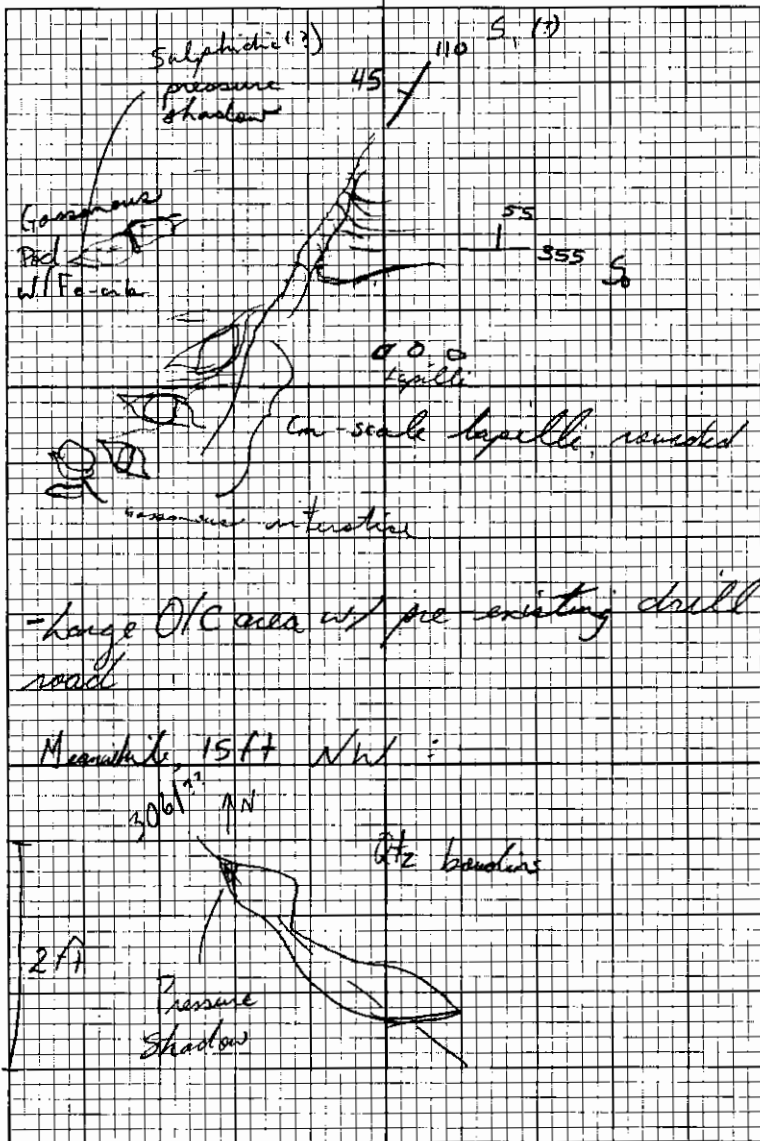 Sulphidic(?)
pressure
shadow
S₁ (?)
110
45
Gossanous
Pod
w/ Fe-carb
55
355 S₀
Lapilli
Cm-scale lapilli, rounded
Gossanous interstice
- Large O/C area w/ pre existing drill
road
Meanwhile, 15 ft NW :
306/??
N
Qtz boudins
2 ft
Pressure
Shadow